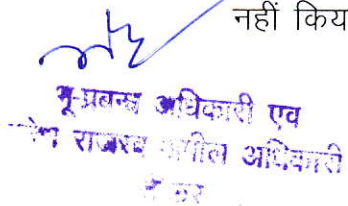 नहीं किय
भू-प्रबन्ध अधिकारी एवं
राजस्व अपील अधिकारी